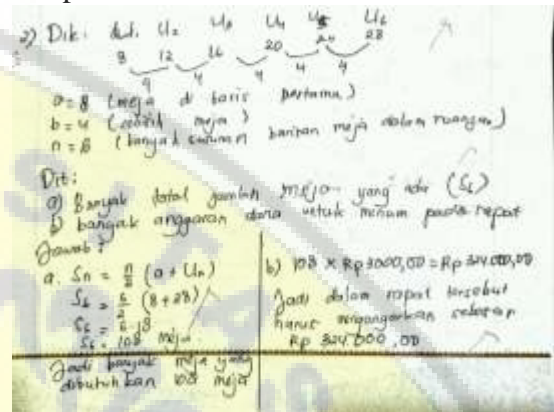 2) Dik: U₂ U₄ U₅ U₆
8 12 16 20 24 28
4 4 4 4 4
a = 8 (meja di baris pertama)
b = 4 (selisih meja)
n = 6 (banyak barisan meja dalam ruangan)
Dit:
a) Banyak total jumlah meja yang ada (S₆)
b) banyak anggaran dana untuk minum pada rapat
Jawab:
a. Sn = n/2 (a + Un)
S₆ = 6/2 (8+28)
S₆ =
S₆ = 108 meja
Jadi banyak meja yang
dibutuhkan 108 meja
b) 108 × Rp 3000,00 = Rp 324.000,00
Jadi dalam rapat tersebut
harus menganggarkan sebesar
Rp 324.000,00